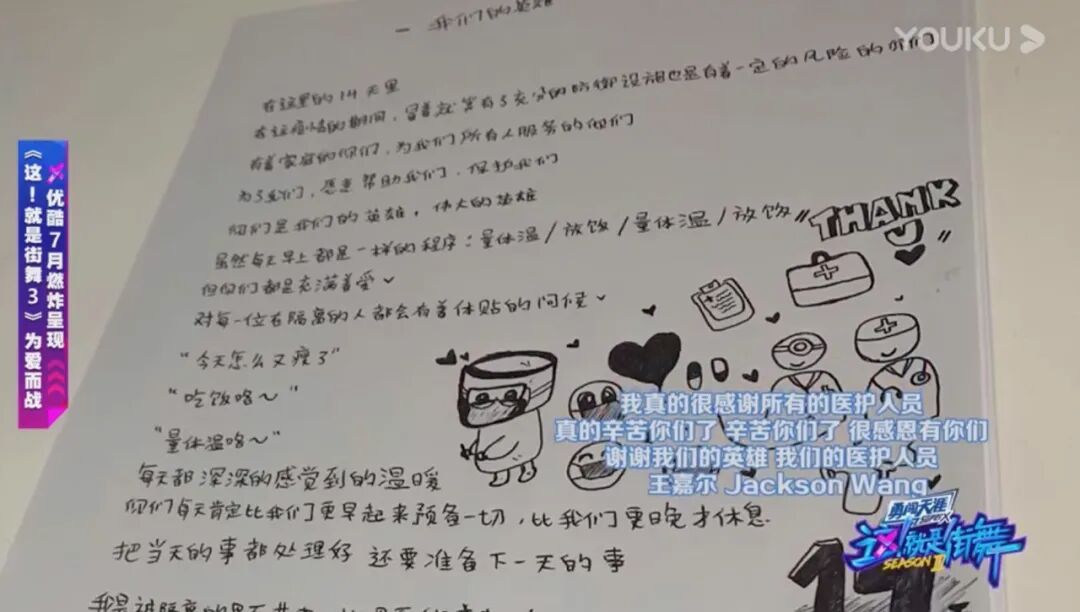 一 我们的英雄
在这里的14天里
在这疫情的期间，冒着就算有了充分的防御设施也是有着一定的风险的你们
有着家庭的你们，为我们所有人服务的他们
为了我们，愿意帮助我们，保护我们
你们是我们的英雄，伟大的英雄
虽然每天早上都是一样的程序：量体温/放饭/量体温/放饭
但你们都是充满着爱
对每一位在隔离的人都会有着体贴的问候
“今天怎么又瘦了”
“吃饭咯～”
“量体温咯～”
每天都深深的感觉到的温暖
你们每天肯定比我们更早起来预备一切，比我们更晚才休息
把当天的事都处理好 还要准备下一天的事
我是被隔离的
"THANK
U"
14
YOUKU
优酷7月燃炸呈现
《这！就是街舞3》为爱而战
我真的很感谢所有的医护人员
真的辛苦你们了 辛苦你们了 很感恩有你们
谢谢我们的英雄 我们的医护人员
王嘉尔 Jackson Wang
勇闯天涯
这！就是街舞
SEASON III